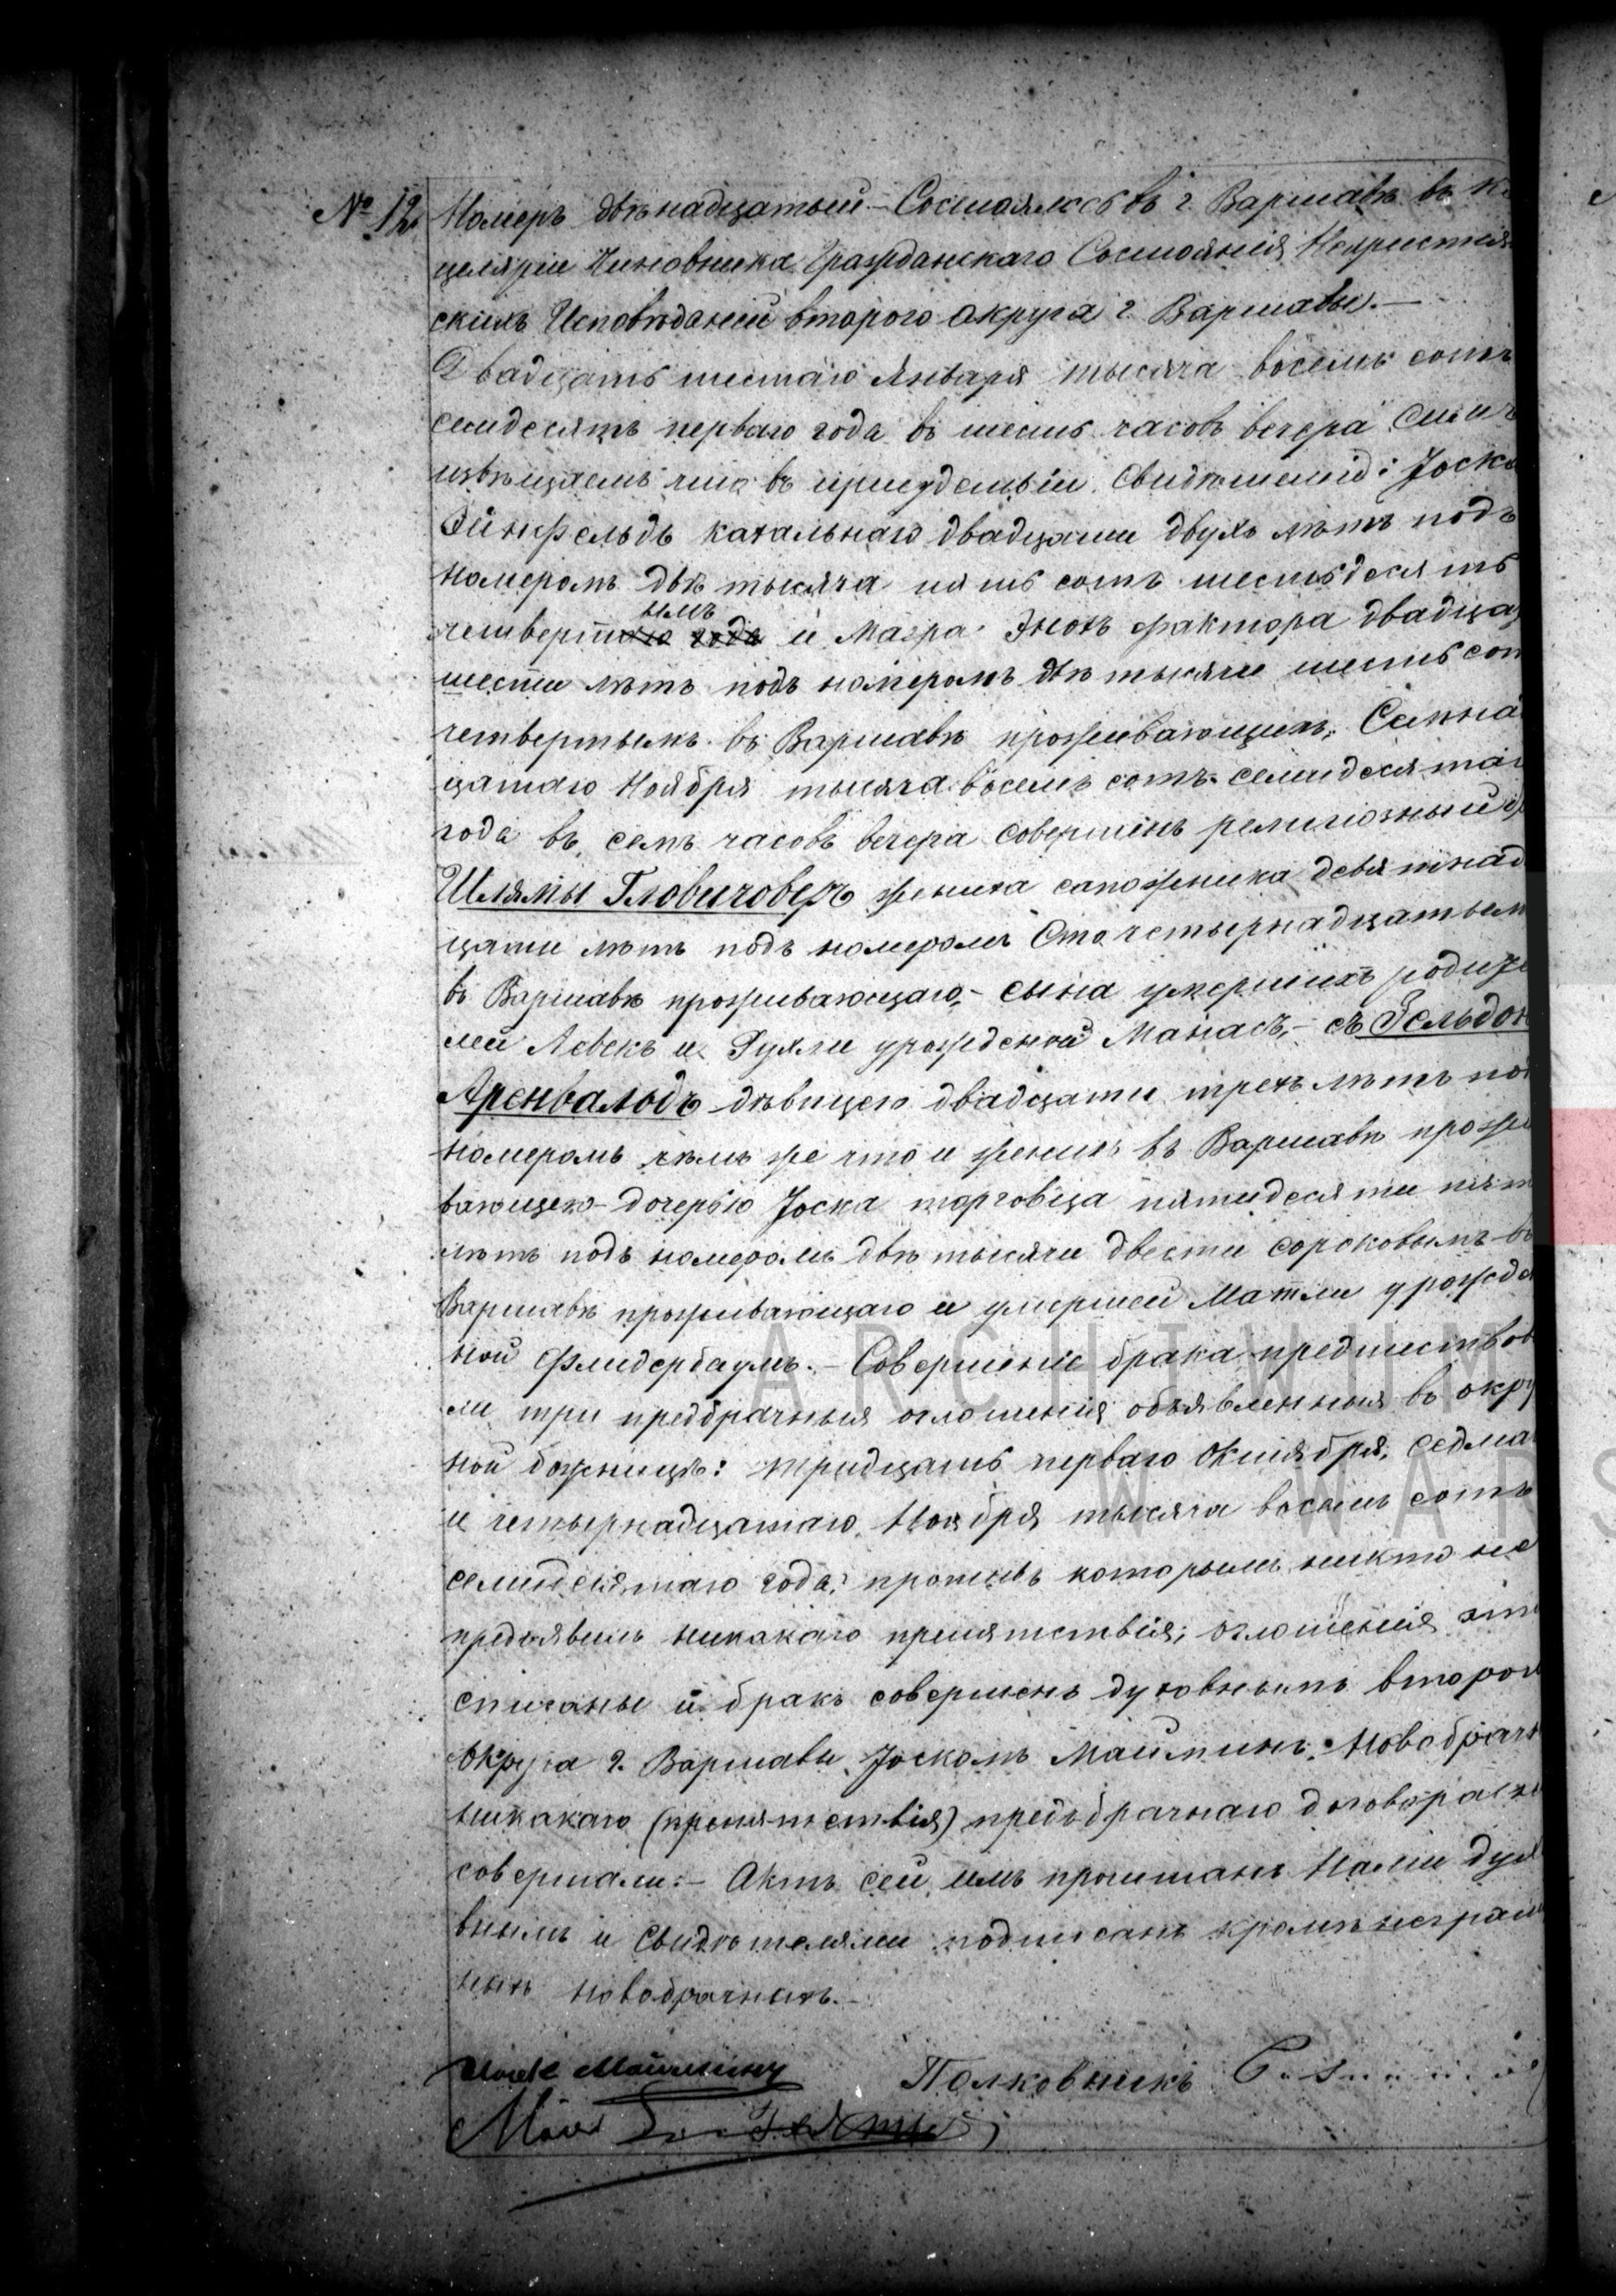 № 12
Номеръ двѣнадцатый – Состоялось въ г. Варшавѣ въ К
целяріи Чиновника Гражданскаго Состоянія Нехристіян
скихъ Исповѣданій втораго округа г. Варшавы. –
Двадцать шестаго Января тысяча восемь сотъ
семдесятъ перваго года въ шесть часовъ вечера Симъ
извѣщаемъ что въ присудствіи Свидѣтелей: Јоска
Эйнфельдъ кагальнаго двадцати двухъ лѣтъ подъ
номеромъ двѣ тысяча пять сотъ шестьдесятъ
четверт ымъ и Маэра Энохъ фактора двадца
шести лѣтъ подъ номеромъ двѣ тысячи шесть сот
четвертымъ въ Варшавѣ проживающихъ, Семна
цатаго Ноября тысяча восемь сотъ семидесятаг
года въ семь часовъ вечера совершёнъ религіозный
Шлямы Гловичоверъ жениха сапожника девятнад
цати лѣтъ подъ номеромъ Сто четырнадцатым
въ Варшавѣ проживающаго, – сына умершихъ родите
лей Левекъ и Рухли урожденной Манасъ, – съ Зельдою
Аренвальдъ дѣвицею двадцати трехъ лѣтъ под
номеромъ тѣмъ же что и женихъ въ Варшавѣ прожи
вающею – дочерью Јоска торговца пятидесяти пят
лѣтъ подъ номеромъ двѣ тысячи двести сороковымъ въ
Варшавѣ проживающаго и умершей Матли урожде
ной Флидербаумъ. – Совершеніе брака предшествов
ли три предбрачныя оглошенія объявленныя въ окру
ной божницѣ: тридцать перваго Октября, седма
и четырнадцатаго Ноября тысяча восемь сотъ
семидесятаго года; противъ которымъ никто не
предъявилъ никакаго препятствія; оглошенія эти
списаны и бракъ совершенъ духовнымъ второг
округа г. Варшавы Јоскомъ Майминъ. Новобрачн
никакаго (препятствія) предъбрачнаго договора не
совершали. – Актъ сей имъ прочитанъ Нами дух
внымъ и Свидѣтелями подписанъ кромѣ неграм
ныхъ новобрачныхъ. –
Майминъ
Полковникъ
ARCHIWUM
W WARS